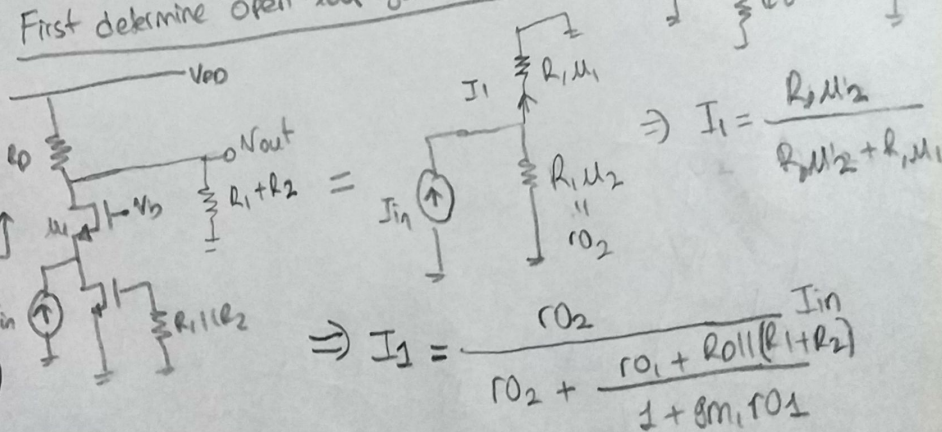 First determine open
VDD
RD
Vout
Vb
M1
R1+R2
=
Iin
R1||R2
I1
R,M1
Iin
R,M2
=
rO2
⇒ I1 = R,M2 / (R,M2 + R,M1)
⇒ I1 = rO2 / (rO2 + (rO1 + RD||(R1+R2)) / (1 + gm1rO1)) Iin